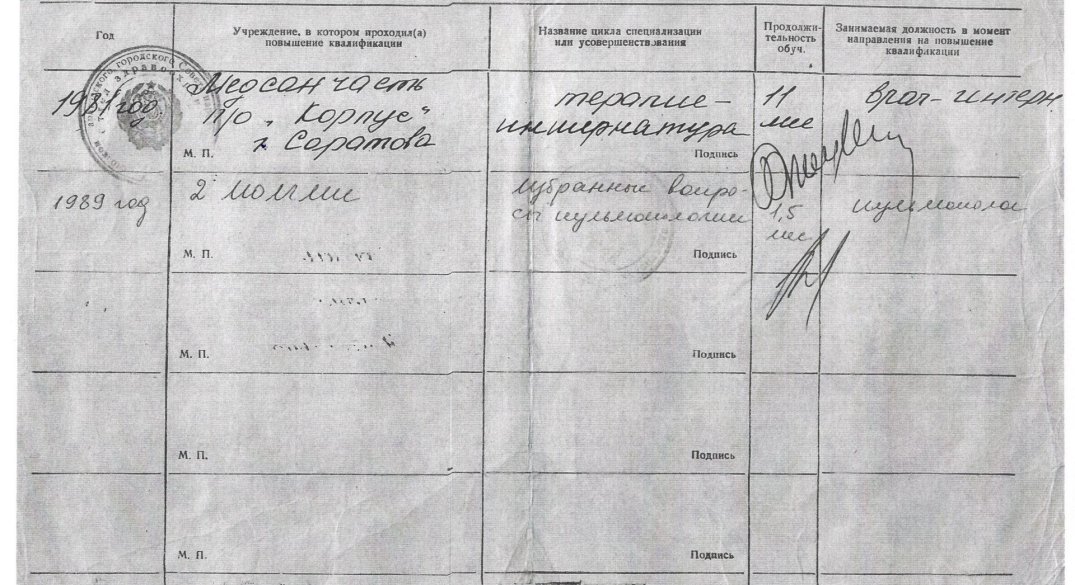 Год
Учреждение, в котором проходил(а)
повышение квалификации
Название цикла специализации
или усовершенствования
Продолжи-
тельность
обуч.
Занимаемая должность в момент
направления на повышение
квалификации
год
Медсанчасть
п/о „Корпус“
г. Саратова
М. П.
терапие-
интернатура
Подпись
11
мес
врач-интерн
1989 год
2 МОЛГМИ
М. П.
Избранные вопро-
сы пульмонологии
Подпись
1,5
мес
пульмонолог
М. П.
Подпись
М. П.
Подпись
М. П.
Подпись